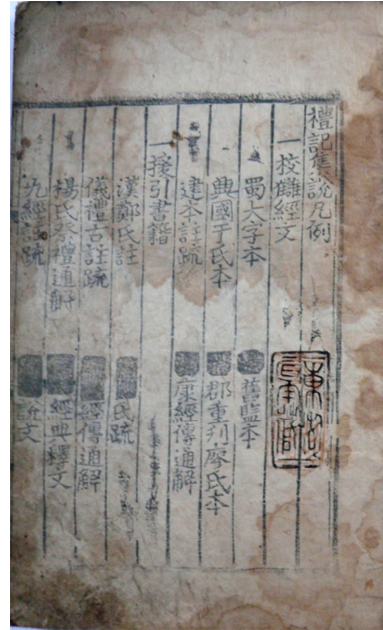 禮記集說凡例
一校讎經文
蜀大字本 舊監本
興國于氏本 郡重刊廖氏本
建本註疏 康經傳通解
一援引書籍
漢鄭氏註 氏疏
儀禮古註疏 經傳通解
楊氏祭禮通解 經典釋文
九經註疏 文